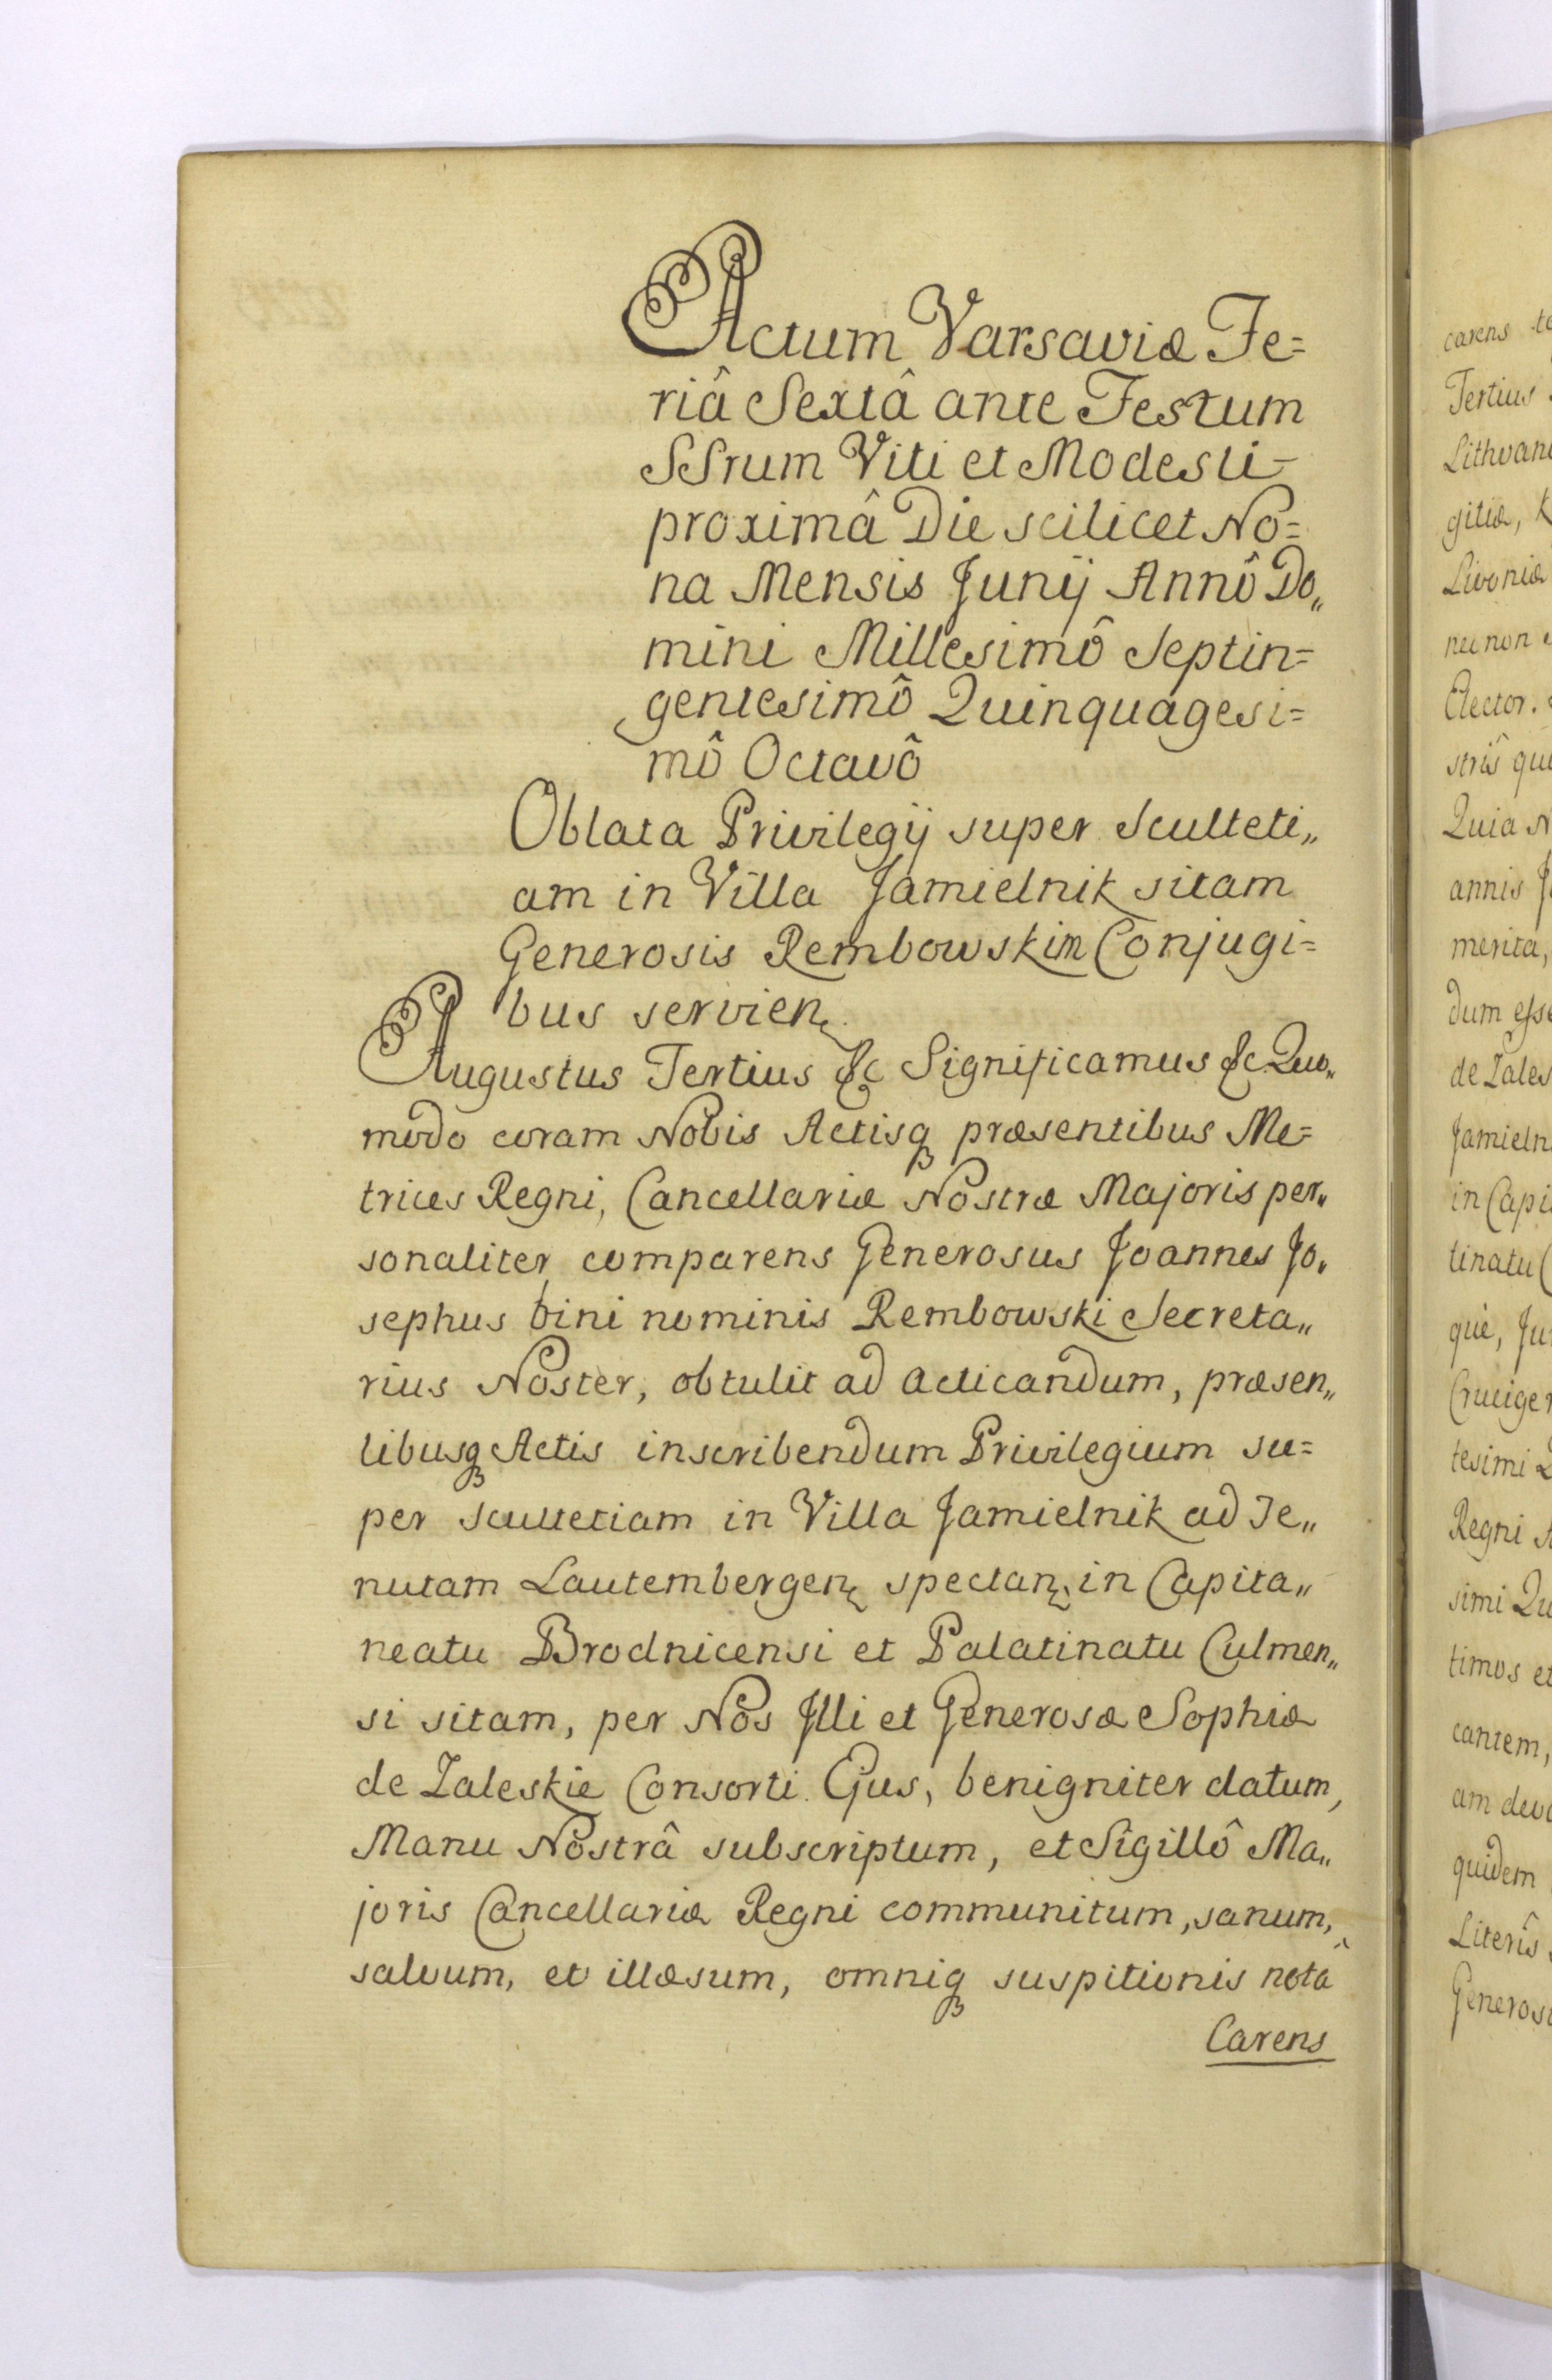 Actum Varsaviæ Fe=
riâ Sextâ ante Festum
SSrum Viti et Modesti
proximâ Die scilicet No=
na Mensis Junij Annô Do„
mini Millesimô Septin=
gentesimô Quinquagesi=
mô Octavô
Oblata Privilegij super Sculteti„
am in Villa Jamielnik sitam
Generosis Rembowskim Conjugi=
bus servien
Augustus Tertius &c Significamus &c Quo„
modo coram Nobis Actisq præsentibus Me=
trices Regni, Cancellariæ Nostræ Majoris per„
sonaliter comparens Generosus Joannes Jo„
sephus bini nominis Rembowski Secreta„
rius Noster, obtulit ad acticandum, præsen„
tibusq Actis inscribendum Privilegium su=
per Scultetiam in Villa Jamielnik ad Te„
nutam Lautembergen spectan in Capita„
neatu Brodnicensi et Palatinatu Culmen„
si sitam, per Nos Illi et Generosæ Sophiæ
de Zaleskie Consorti Ejus, benigniter datum,
Manu Nostrâ subscriptum, et Sigillô Ma„
joris Cancellariæ Regni communitum, sanum,
salvum, et illæsum, omniq suspitionis notâ
Carens
carens
Tertius
Lithvani
gitiæ, K
Livoniæ
necnon
Elector.
strîs qui
Quia N
annis J
merita,
dum esse
de Zales
Jamieln
in Capi
tinatu C
què, Ju
Cruciger
tesimi Q
Regni
simi Qu
timus et
cantem,
am devo
quidem
Literîs
Generosi